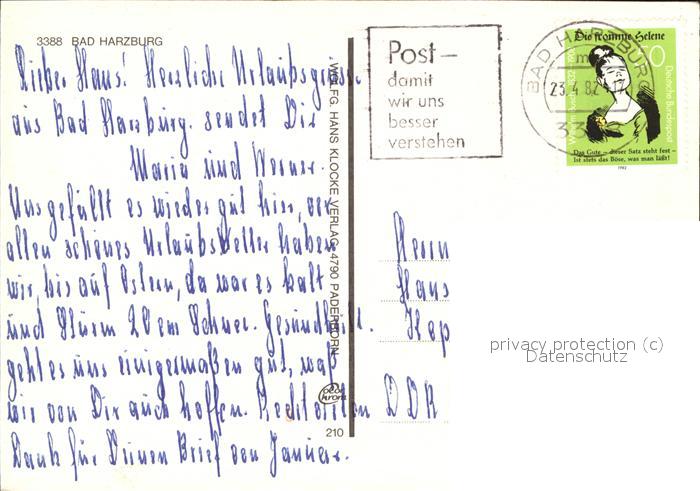 3388 BAD HARZBURG
Lieber Hans! Herzliche Urlaubsgrüsse
aus Bad Harzburg. sendet Dir
Maria und Werner.
Uns gefällt es wieder gut hier, vor
allem schönes Urlaubswetter haben
wir, bis auf Ostern, da war es kalt
und Sturm 20 cm Schnee. Gesundheitl.
geht es uns einigermaßen gut, was
wir von Dir auch hoffen. Recht vielen
Dank für Deinen Brief von Januar.
WOLFG. HANS KLOCKE VERLAG 4790 PADERBORN
210
Post –
damit
wir uns
besser
verstehen
BAD HARZBURG
23.4.82
33
Die fromme Helene
50
Deutsche Bundespost
Das Gute – dieser Satz steht fest –
Ist stets das Böse, was man läßt!
1982
Herrn
Hans
DDR
privacy protection (c)
Datenschutz